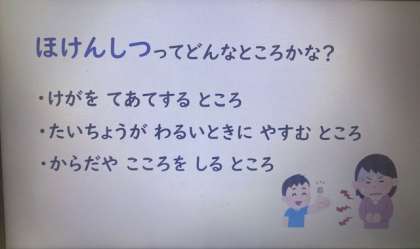 ほけんしつってどんなところかな？
・けがを てあてする ところ
・たいちょうが わるいときに やすむ ところ
・からだや こころを しる ところ